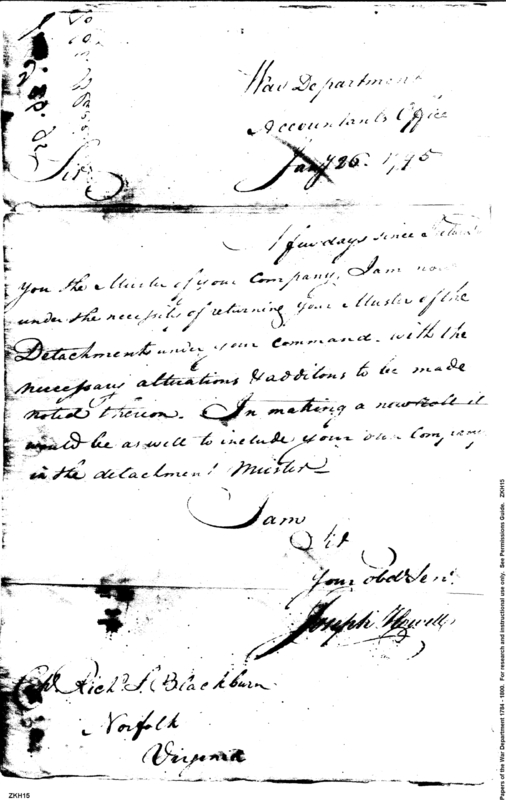 War Department
Accountants Office
Jany 26. 1795
Sir
A few days since I returned
you the Muster of your Company, I am now
under the necessity of returning your Muster of the
Detachment under your command. with the
necessary altirations & additons to be made
noted thereon. In making a new roll it
would be as well to include your own Company
in the detachment Muster_
I am
Sir
Your Obd Serv.
Joseph Howell
Capt Richd S. Blackburn
Norfolk
Virginia
ZKH15
Papers of the War Department 1784 - 1800. For research and instructional use only. See Permissions Guide. ZKH15